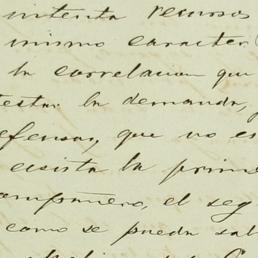 intenta recursos
mismo caracter
la correlacion que
testar la demanda,
efensas, que no es
asista la prime
ompañero, el seg
como se pueda sal